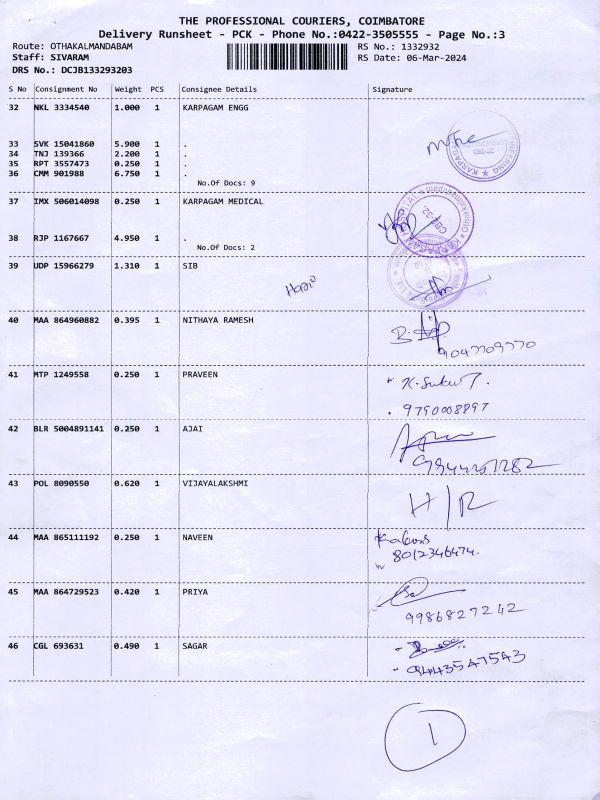 THE PROFESSIONAL COURIERS, COIMBATORE
Delivery Runsheet - PCK - Phone No.:0422-3505555 - Page No.:3
Route: OTHAKALMANDABAM RS No.: 1332932
Staff: SIVARAM RS Date: 06-Mar-2024
DRS No.: DCJB133293203
S No Consignment No Weight PCS Consignee Details Signature
32 NKL 3334540 1.000 1 KARPAGAM ENGG
33 SVK 15041860 5.900 1 .
34 TNJ 139366 2.200 1 .
35 RPT 3557473 0.250 1 .
36 CMM 901988 6.750 1 .
No.Of Docs: 9
37 IMX 506014098 0.250 1 KARPAGAM MEDICAL
38 RJP 1167667 4.950 1 .
No.Of Docs: 2
39 UDP 15966279 1.310 1 SIB
40 MAA 864960882 0.395 1 NITHAYA RAMESH
9047709770
41 MTP 1249558 0.250 1 PRAVEEN
9790008897
42 BLR 5004891141 0.250 1 AJAI
43 POL 8090550 0.620 1 VIJAYALAKSHMI
H/R
44 MAA 865111192 0.250 1 NAVEEN
8012346474.
45 MAA 864729523 0.420 1 PRIYA
9986827242
46 CGL 693631 0.490 1 SAGAR
9443547543
1